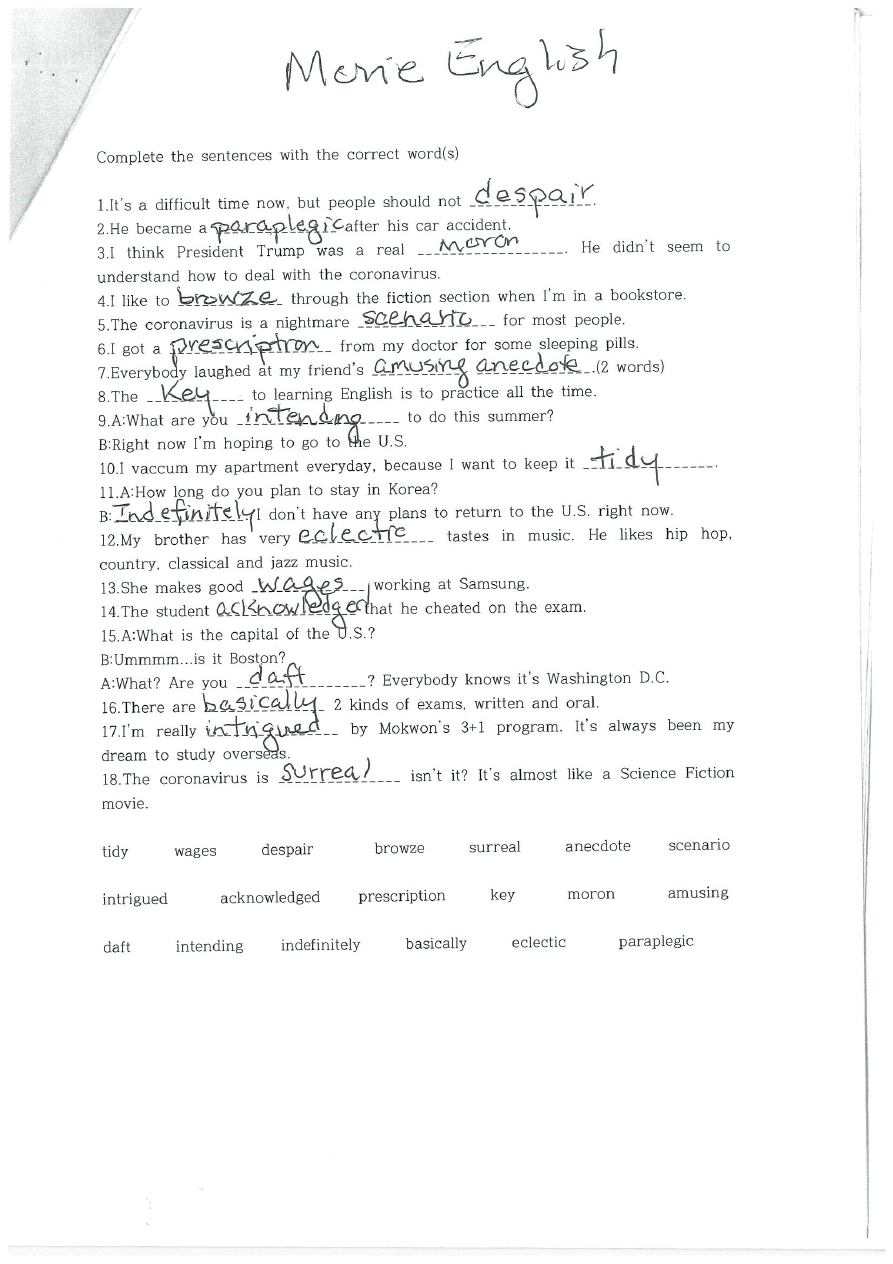 Movie English
Complete the sentences with the correct word(s)
1.It's a difficult time now, but people should not despair.
2.He became a paraplegic after his car accident.
3.I think President Trump was a real moron. He didn't seem to
understand how to deal with the coronavirus.
4.I like to browze through the fiction section when I'm in a bookstore.
5.The coronavirus is a nightmare scenario for most people.
6.I got a prescription from my doctor for some sleeping pills.
7.Everybody laughed at my friend's amusing anecdote.(2 words)
8.The Key to learning English is to practice all the time.
9.A:What are you intending to do this summer?
B:Right now I'm hoping to go to the U.S.
10.I vaccum my apartment everyday, because I want to keep it tidy.
11.A:How long do you plan to stay in Korea?
B:Indefinitely I don't have any plans to return to the U.S. right now.
12.My brother has very eclectic tastes in music. He likes hip hop,
country, classical and jazz music.
13.She makes good wages working at Samsung.
14.The student acknowledged that he cheated on the exam.
15.A:What is the capital of the U.S.?
B:Ummmm...is it Boston?
A:What? Are you daft? Everybody knows it's Washington D.C.
16.There are basically 2 kinds of exams, written and oral.
17.I'm really intrigued by Mokwon's 3+1 program. It's always been my
dream to study overseas.
18.The coronavirus is surreal isn't it? It's almost like a Science Fiction
movie.
tidy wages despair browze surreal anecdote scenario
intrigued acknowledged prescription key moron amusing
daft intending indefinitely basically eclectic paraplegic